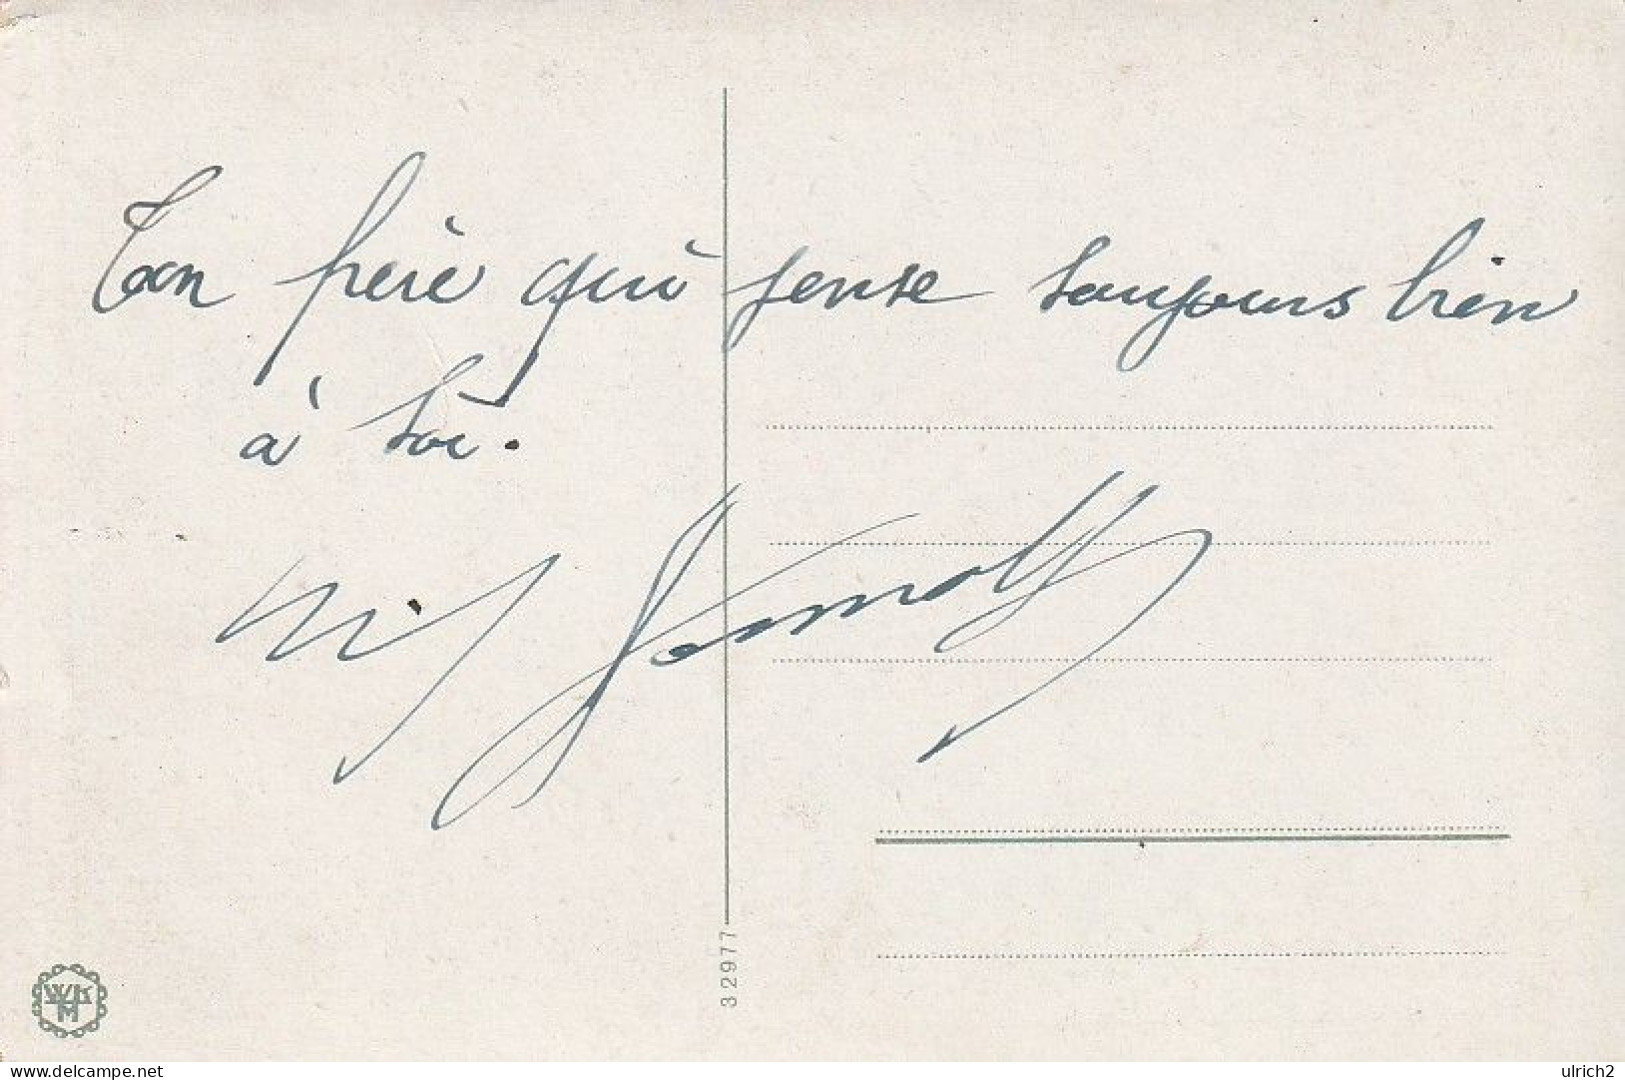 Ton frère qui pense toujours bien
à toi.
32977
WK
M
delcampe.net
ulrich2